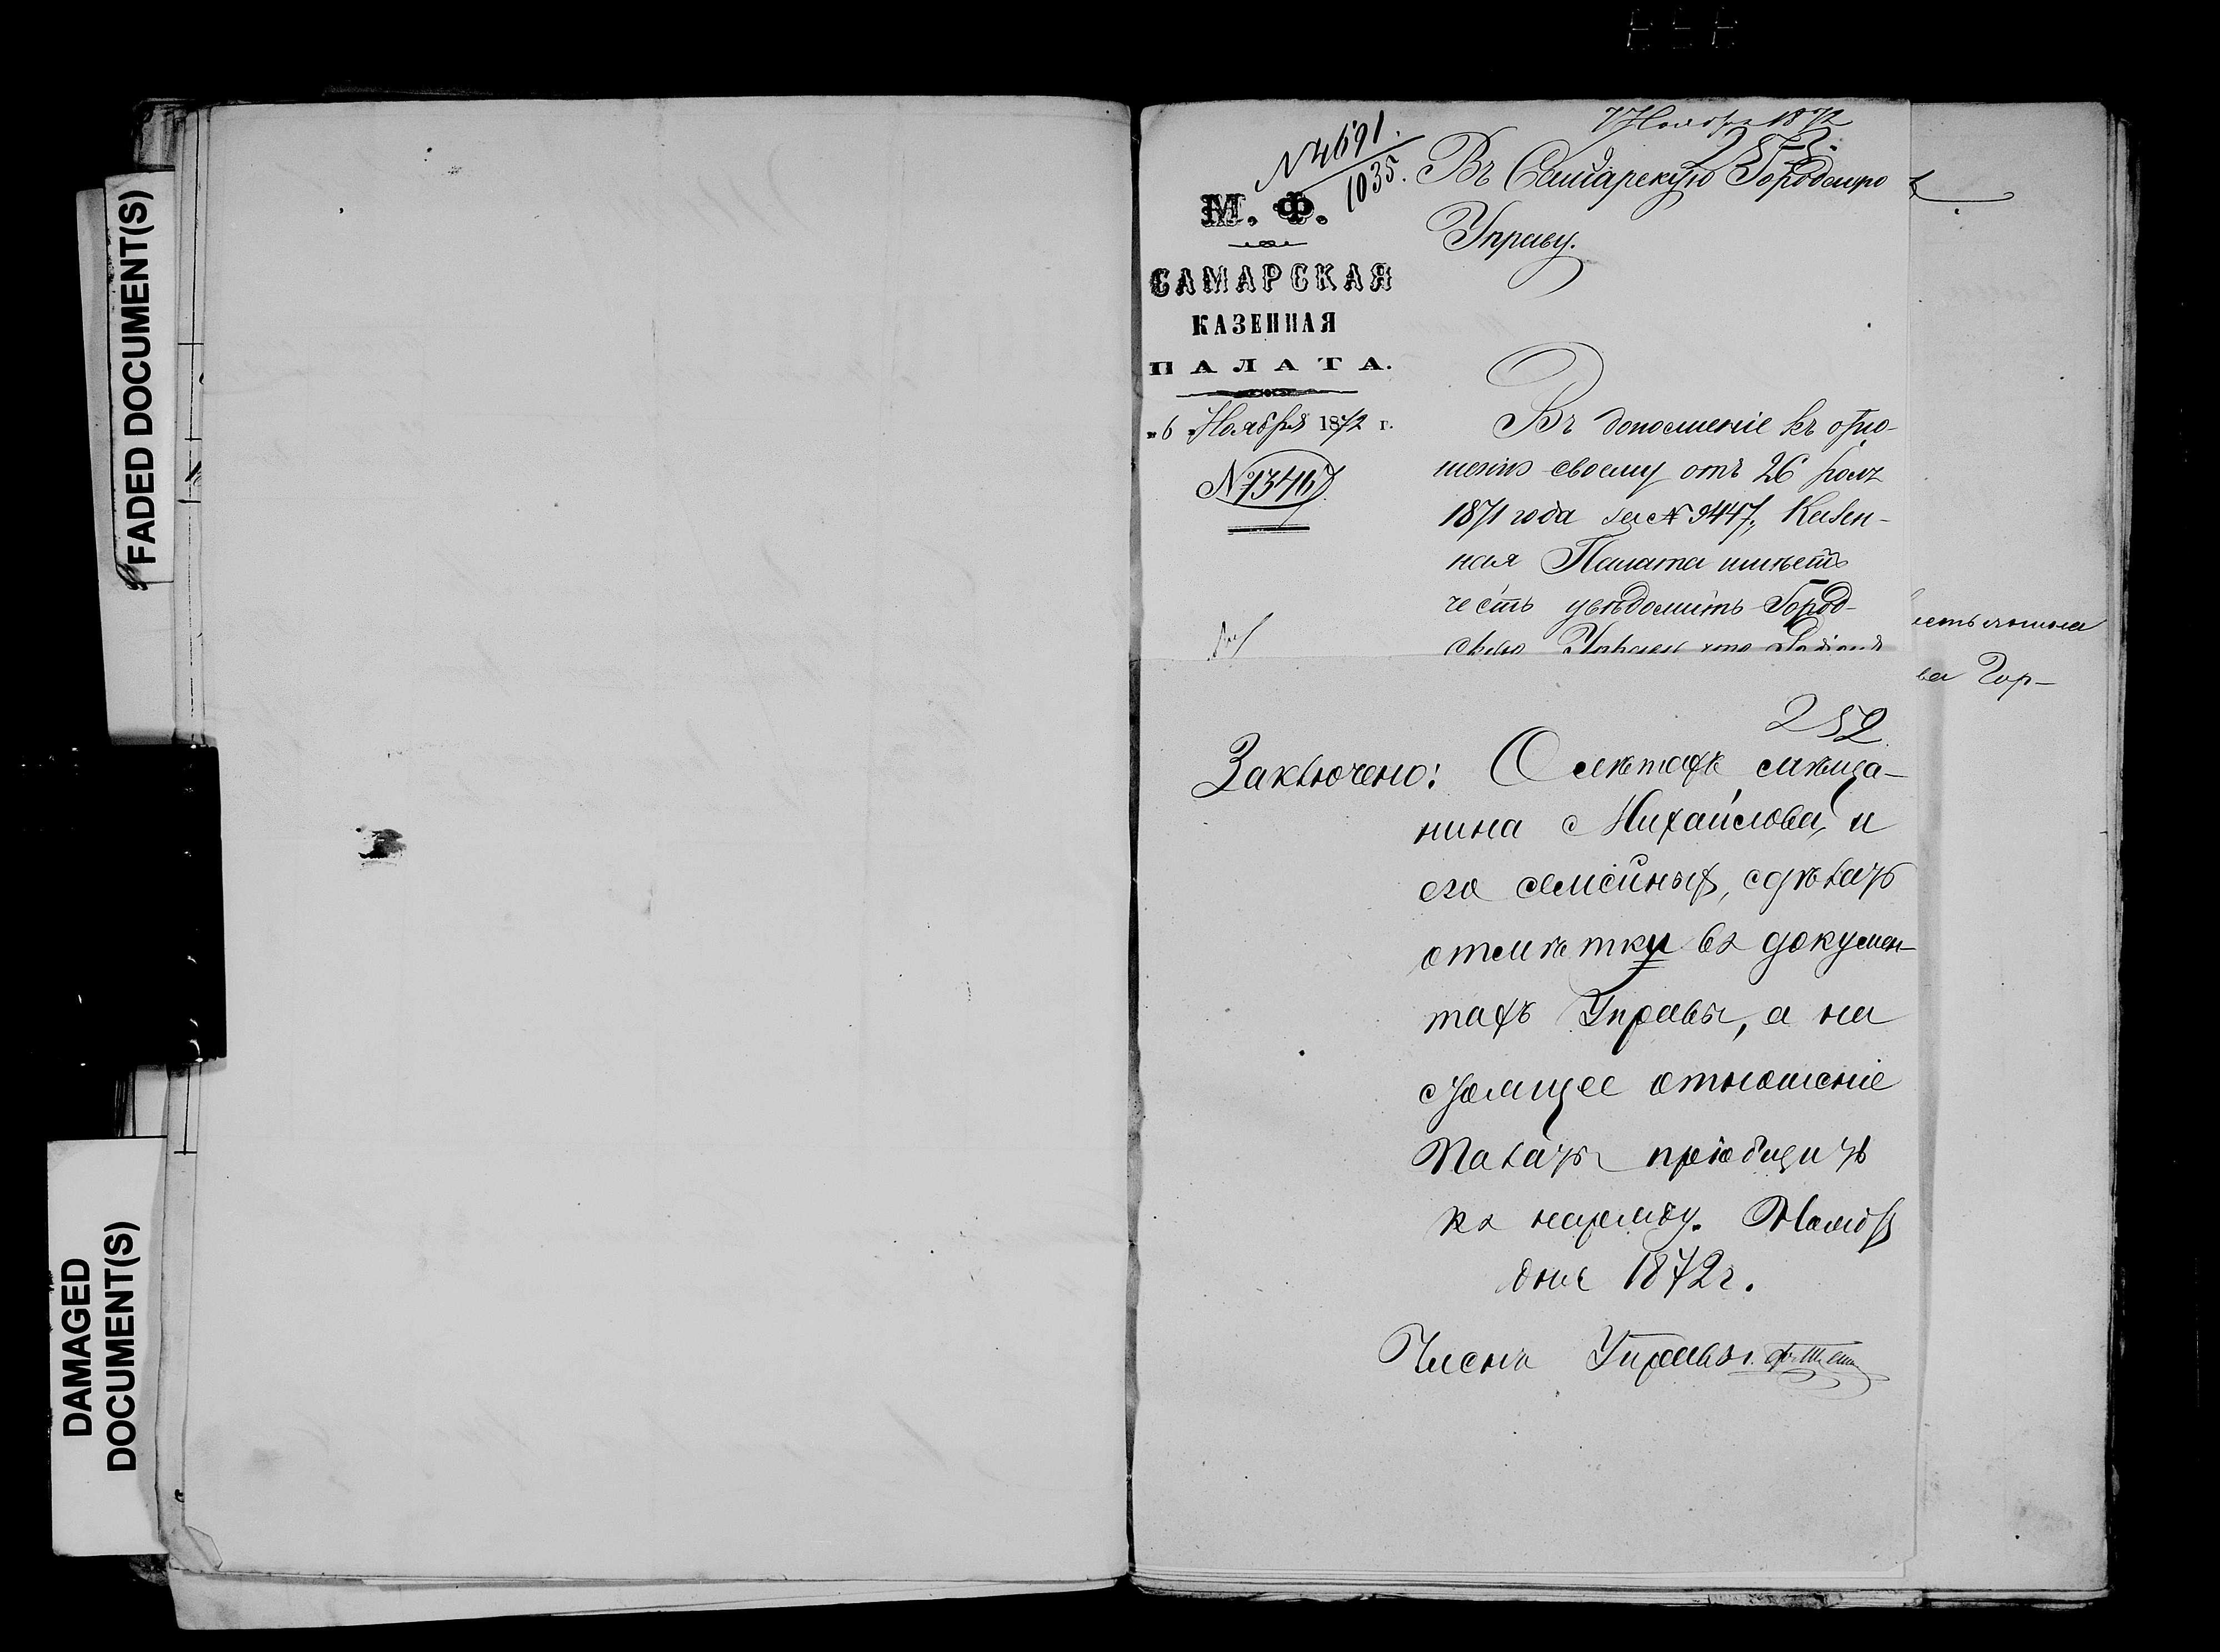 FADED DOCUMENT(S)
DAMAGED
DOCUMENT(S)
7 Ноября 1872
253.
№ 4691.
1035.
М. Ф.
САМАРСКАЯ
КАЗЕННАЯ
ПАЛАТА.
„6 „ Ноября 1872 г.
№ 13467
Въ Самарскую Городскую
Управу.
Въ дополненіе къ отно-
шенію своему отъ 26
1871 года за № 9447, Казен-
ная Палата имѣетъ
честь увѣдомить Город-
скую Управу что
252
Заключено: О мѣща-
нина Михайлова и
его семейныхъ, сдѣлать
отмѣтку въ докумен-
тахъ Управы, а на
стоящее отношеніе
Палаты пріобщить
къ наряду. Ноября
дня 1872 г.
Членъ Управы
ва Гор-